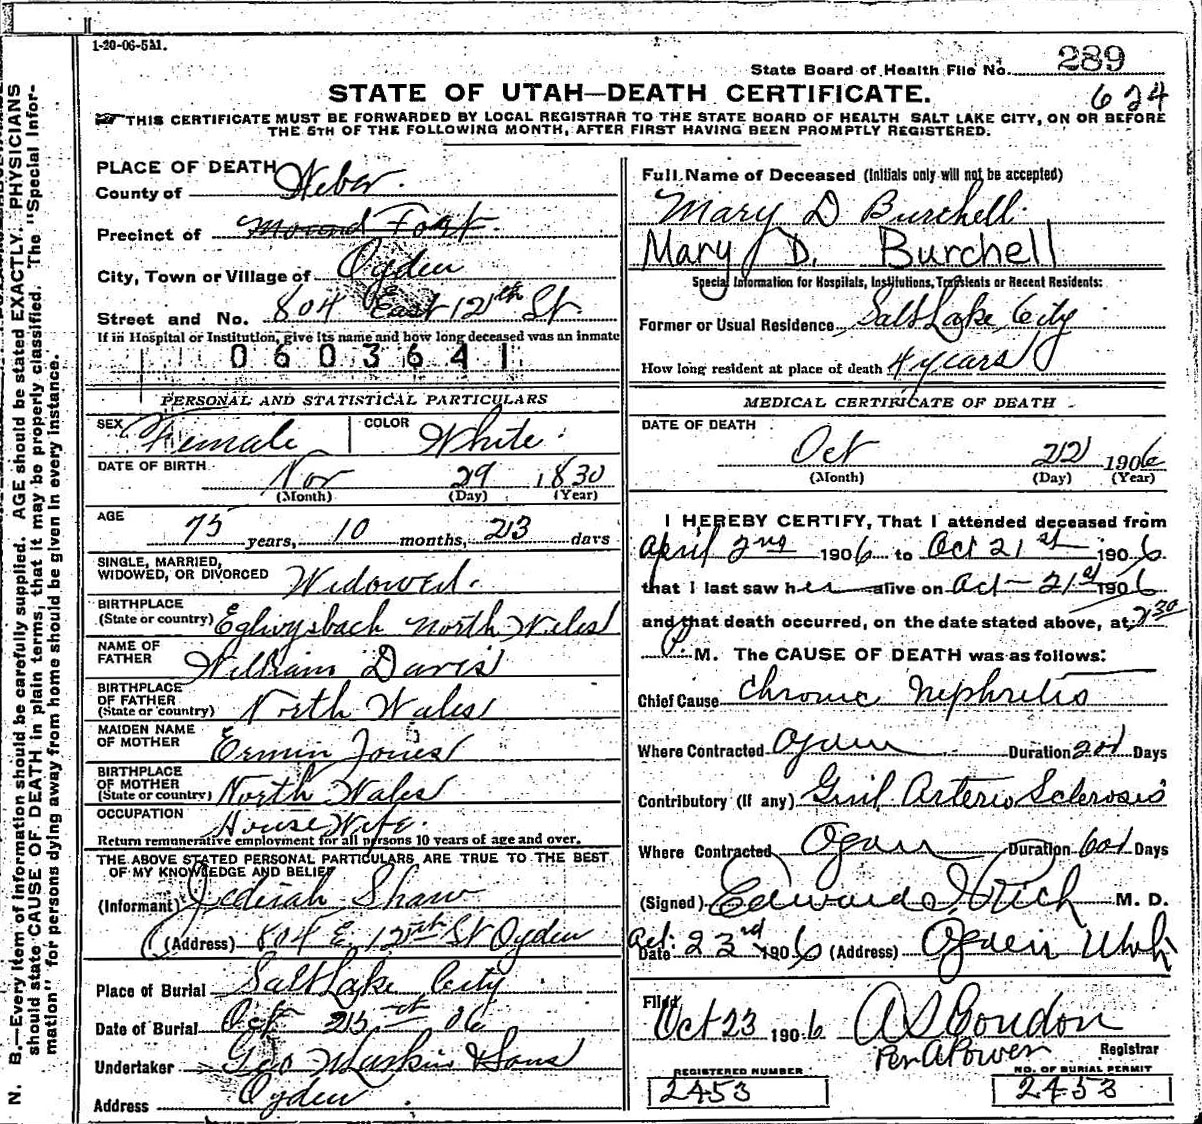 1-20-06-5M.
State Board of Health File No. 289
STATE OF UTAH—DEATH CERTIFICATE.
624
THIS CERTIFICATE MUST BE FORWARDED BY LOCAL REGISTRAR TO THE STATE BOARD OF HEALTH SALT LAKE CITY, ON OR BEFORE
THE 5TH OF THE FOLLOWING MONTH, AFTER FIRST HAVING BEEN PROMPTLY REGISTERED.
N. B.—Every item of information should be carefully supplied. AGE should be stated EXACTLY. PHYSICIANS
should state CAUSE OF DEATH in plain terms, that it may be properly classified. The "Special Infor-
mation" for persons dying away from home should be given in every instance.
PLACE OF DEATH
County of Weber.
Precinct of Mound Fort.
City, Town or Village of Ogden
Street and No. 804 East 12th St.
If in Hospital or Institution, give its name and how long deceased was an inmate
0603641
PERSONAL AND STATISTICAL PARTICULARS
SEX Female COLOR White.
DATE OF BIRTH Nov 29 1830
(Month) (Day) (Year)
AGE 75 years, 10 months, 23 days
SINGLE, MARRIED,
WIDOWED, OR DIVORCED Widowed.
BIRTHPLACE
(State or country) Eglwysbach North Wales
NAME OF
FATHER William Davis
BIRTHPLACE
OF FATHER
(State or country) North Wales
MAIDEN NAME
OF MOTHER Ermin Jones
BIRTHPLACE
OF MOTHER
(State or country) North Wales
OCCUPATION House Wife.
Return remunerative employment for all persons 10 years of age and over.
THE ABOVE STATED PERSONAL PARTICULARS ARE TRUE TO THE BEST
OF MY KNOWLEDGE AND BELIEF
(Informant) Jediah Shaw
(Address) 804 E 12th St Ogden
Place of Burial Salt Lake City
Date of Burial Oct 25 06
Undertaker Geo Larkin & Sons
Address Ogden
Full Name of Deceased (Initials only will not be accepted)
Mary D Burchell
Mary D. Burchell
Special Information for Hospitals, Institutions, Transients or Recent Residents:
Former or Usual Residence Salt Lake City
How long resident at place of death 4 years
MEDICAL CERTIFICATE OF DEATH
DATE OF DEATH
Oct 22 1906
(Month) (Day) (Year)
I HEREBY CERTIFY, That I attended deceased from
April 2nd 1906 to Oct 21st 1906
that I last saw her alive on Oct 21st 1906
and that death occurred, on the date stated above, at 2 30
P. M. The CAUSE OF DEATH was as follows:
Chief Cause Chronic Nephritis
Where Contracted Ogden Duration 201 Days
Contributory (If any) Genl. Arterio Sclerosis
Where Contracted Ogden Duration 601 Days
(Signed) Edward I Rich M. D.
Date Oct. 23rd 1906 (Address) Ogden Utah
Filed Oct 23 1906 A S Condon
Per A Power Registrar
REGISTERED NUMBER
2453
NO. OF BURIAL PERMIT
2453